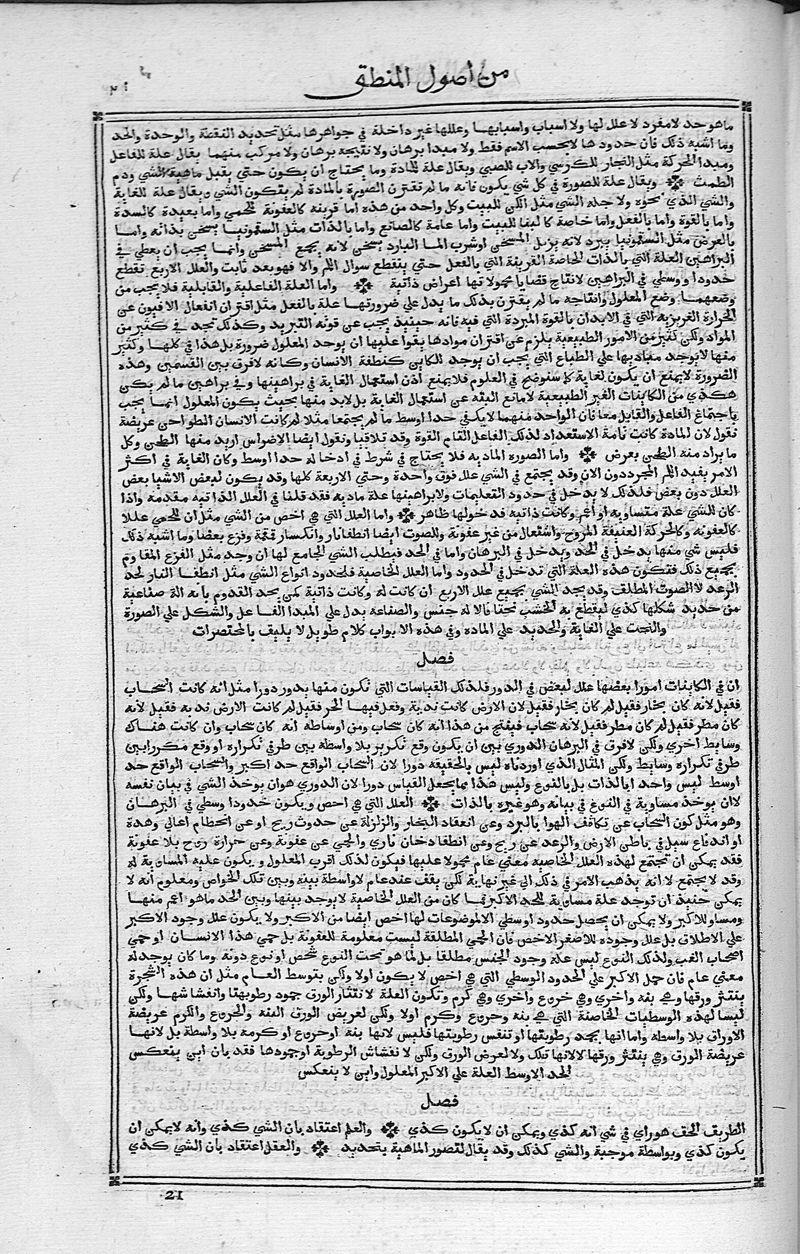 من اصول المنطق
ما هو حد لامفرد لا علل لها ولا اسباب واسبابها وعللها غير داخلة في جواهرها مثل تحديد النقطة والوحدة والحد
وما اشبه ذلك فان حدودها لا بحسب الاسم فقط ولا مبدا برهان ولا نتيجة برهان ولا مركب منهما يقال علة للفاعل
ومبدا الحركة مثل النجار للكرسي والاب للصبي ويقال علة للمادة وما يحتاج ان يكون حتي يقبل ماهية الشي ودم
الطمث ويقال علة للصورة في كل شي يكون فانه ما لم تقترن الصورة بالمادة لم يتكون الشي ويقال علة للغاية
والشي الذي نحوه ولا جله الشي مثل الكن للبيت وكل واحد من هذه اما قريبة كالعفونة للحمي واما بعيدة كالسدة
واما بالقوة واما بالفعل واما خاصة كالبنا للبيت واما عامة كالصانع واما بالذات مثل السقمونيا يسخن بذاته واما
بالعرض مثل السقمونيا يبرد لانه يزيل المسخن او شرب الما البارد يسخن لانه يجمع المسخن وانما يجب ان يعطي في
البراهين العلة التي بالذات الخاصة القريبة التي بالفعل حتي ينقطع سوال اللم والا فهو بعد ثابت والعلل الاربع تقطع
حدودا ووسطي في البراهين لانتاج قضايا محمولاتها اعراض ذاتية واما العلة الفاعلية والقابلية فلا يجب من
وضعهما وضع المعلول وانتاجه ما لم يقترن بذلك ما يدل علي ضرورتها علة بالفعل مثل اقتران انفعال الافيون عن
الحرارة الغريزية التي في الابدان بالقوة المبردة التي فيه فانه حينيذ يجب عن قوته التبريد وكذلك نجد في كثير من
المواد ولكن كثير من الامور الطبيعية يلزم عن اقتران موادها بقوا عليها ان يوجد المعلول ضرورة بل هذا في كلها وكثير
منها لا يوجد مباديها علي الطباع التي يجب ان يوجد للكاين كنطفة الانسان وكانه لا فرق بين القسمين وهذه
الضرورة لا يمنع ان يكون لغاية كما سنوضح في العلوم فلا يمنع اذن استعمال الغاية في براهينها وفي براهين ما لم يكن
هكذي من الكاينات الغير الطبيعية لا مانع البته عن استعمال الغاية بل لا بد منها بحيث يكون المعلول انما يجب
باجتماع الفاعل والقابل معا فان الواحد منهما لا يكفي حدا اوسط ما لم يجتمعا مثلا لم كانت الانسان الطواحن عريضة
نقول لان المادة كانت تامة الاستعداد لذلك الفاعل التام القوة وقد تلاقيا ونقول ايضا الاضراس اريد منها الطحن وكل
ما يراد منه الطحن يعرض واما الصوره الماديه فلا يحتاج في شرط في ادخاله حدا اوسط وكان الغاية في اكثر
الامر يفيد اللم المجرد دون الان وقد يجتمع في الشي علل فوق واحدة وحتي الاربعة كلها وقد يكون لبعض الاشيا بعض
العلل دون بعض فلذلك لا يدخل في حدود التعليمات ولا براهينها علة ماديه فقد قلنا في العلل الذاتيه مقدمه واذا
كان للشي علة متساويه او اعم وكانت ذاتيه فدخولها ظاهر واما العلل التي هي اخص من الشي مثل ان للحمي عللا
كالعفونه وكالحركة العنيفة المروح واشتعال من غير عفونة وللصوت ايضا انطفا نار وانكسار قمقمة وفزع بعصا وما اشبه ذلك
فليس شي منها يدخل في الحد ويدخل في البرهان واما في الحد فيطلب الشي الجامع لها ان وجد مثل الفزع المقاوم
يجمع ذلك فتكون هذه العلة التي تدخل في الحدود واما العلل الخاصية فلحدود انواع الشي مثل انطفا النار لحد
الرعد لا الصوت المطلق وقد يحد الشي بجميع علل الاربع ان كانت له وكانت ذاتية كمن يحد القدوم بانه الة صناعية
من حديد شكلها كذي ليقطع به الخشب نحتا فالاله جنس والصناعه يدل علي المبدا الفاعل والشكل علي الصورة
والنحت علي الغاية والحديد علي الماده وفي هذه الابواب كلام طويل لا يليق بالمختصرات
فصل
ان في الكاينات امورا بعضها علل لبعض في الدور فلذلك القياسات التي تكون منها يدور دورا مثل انه كانت السحاب
فقيل لانه كان بخار فقيل لم كان بخار فقيل لان الارض كانت ندية وفعل فيها الحر فقيل لم كانت الارض نديه فقيل لانه
كان مطر فقيل لم كان مطر فقيل لانه سحاب فينتج من هذا انه كان سحاب ومن اوساطه انه كان سحاب وان كانت هناك
وسايط اخري ولكن لا فرق في البرهان الدوري بين ان يكون وقع تكرير بلا واسطة بين طرفي تكراره او وقع مكررا بين
طرفي تكراره وسايط ولكن المثال الذي اوردناه ليس بالحقيقه دورا لان السحاب الواقع حد اكبر والسحاب الواقع حد
اوسط ليس واحد ا بالذات بل بالنوع وليس هذا مما يجعل القياس دورا لان الدوري هوان يوخذ الشي في بيان نفسه
لا ان يوخذ مساوية في النوع في بيانه وهو غيره بالذات العلل التي هي اخص ويكون حدودا وسطي في البرهان
وهو مثل كون السحاب عن تكاثف الهوا بالبرد وعن انعقاد البخار والزلزلة عن حدوث ريح او عن انحطام اعالي وهدة
او اندفاع سيل في باطن الارض والرعد عن ريح وعن انطفا دخان ناري والحمي عن عفونة وعن حرارة روح بلا عفونة
فقد يمكن ان تجتمع لهذه العلل الخاصية معني عام محمولا عليها فيكون لذلك اقرب المعلول ويكون عليه المساوية له
وقد لا يجتمع لا انه يذهب الامر في ذلك الي غير نهاية لكن يقف عند عام لا واسطة بينه وبين تلك الخواص ومعلوم انه لا
يمكن حينيذ ان توجد علة مساوية للحد الاكبر فما كان من العلل الخاصية لا يوجد بينها وبين الحد ما هو اعم منها
ومساو للاكبر ولا يمكن ان يحصل حدود اوسطي الا لموضوعات لها اخص ايضا من الاكبر ولا يكون علل وجود الاكبر
علي الاطلاق بل علل وجوده للاصغر الاخص فان الحمي المطلقة ليست معلومة للعفونة بل حمي هذا الانسان او حمي
اصحاب الغب ولذلك النوع ليس علة وجود الجنس مطلقا بل لما هو تحت النوع شخص او نوع دونه وما كان يوجد له
معني عام فان حمل الاكبر علي الحدود الوسطي التي هي اخص لا يكون اولا ولكن بتوسط العام مثل ان هذه الشجرة
ينتثر ورقها وهي بنه واخري وهي خروع واخري وهي كرم وتكون العلة لانتثار الورق جمود رطوبتها وانفشاشها ولكن
ليسا لهذه الوسطيات الخاصية التي هي بنه وخروع وكرم اولا ولكن لعريض الورق البنه والخروع والكرم عريضة
الاوراق بلا واسطه واما انها يجمد رطوبتها او تنفس رطوبتها فليس لانها بنه او خروع او كرمه بلا واسطة بل لانها
عريضة الورق وهي ينتثر ورقها لا لانها تلك ولا لعرض الورق ولكن لانفشاش الرطوبة اوجمودها فقد بان ابي ينعكس
الحد الاوسط العلة علي الاكبر المعلول وابن لا ينعكس
فصل
الطريف الحق هو راي في شي انه كذي ويمكن ان لا يكون كذي والعلم اعتقاد بان الشي كذي وانه لا يمكن ان
يكون كذي وبواسطة موجبة والشي كذلك وقد يقال لتصور الماهية بتحديد والعقل اعتقاد بان الشي كذي
21